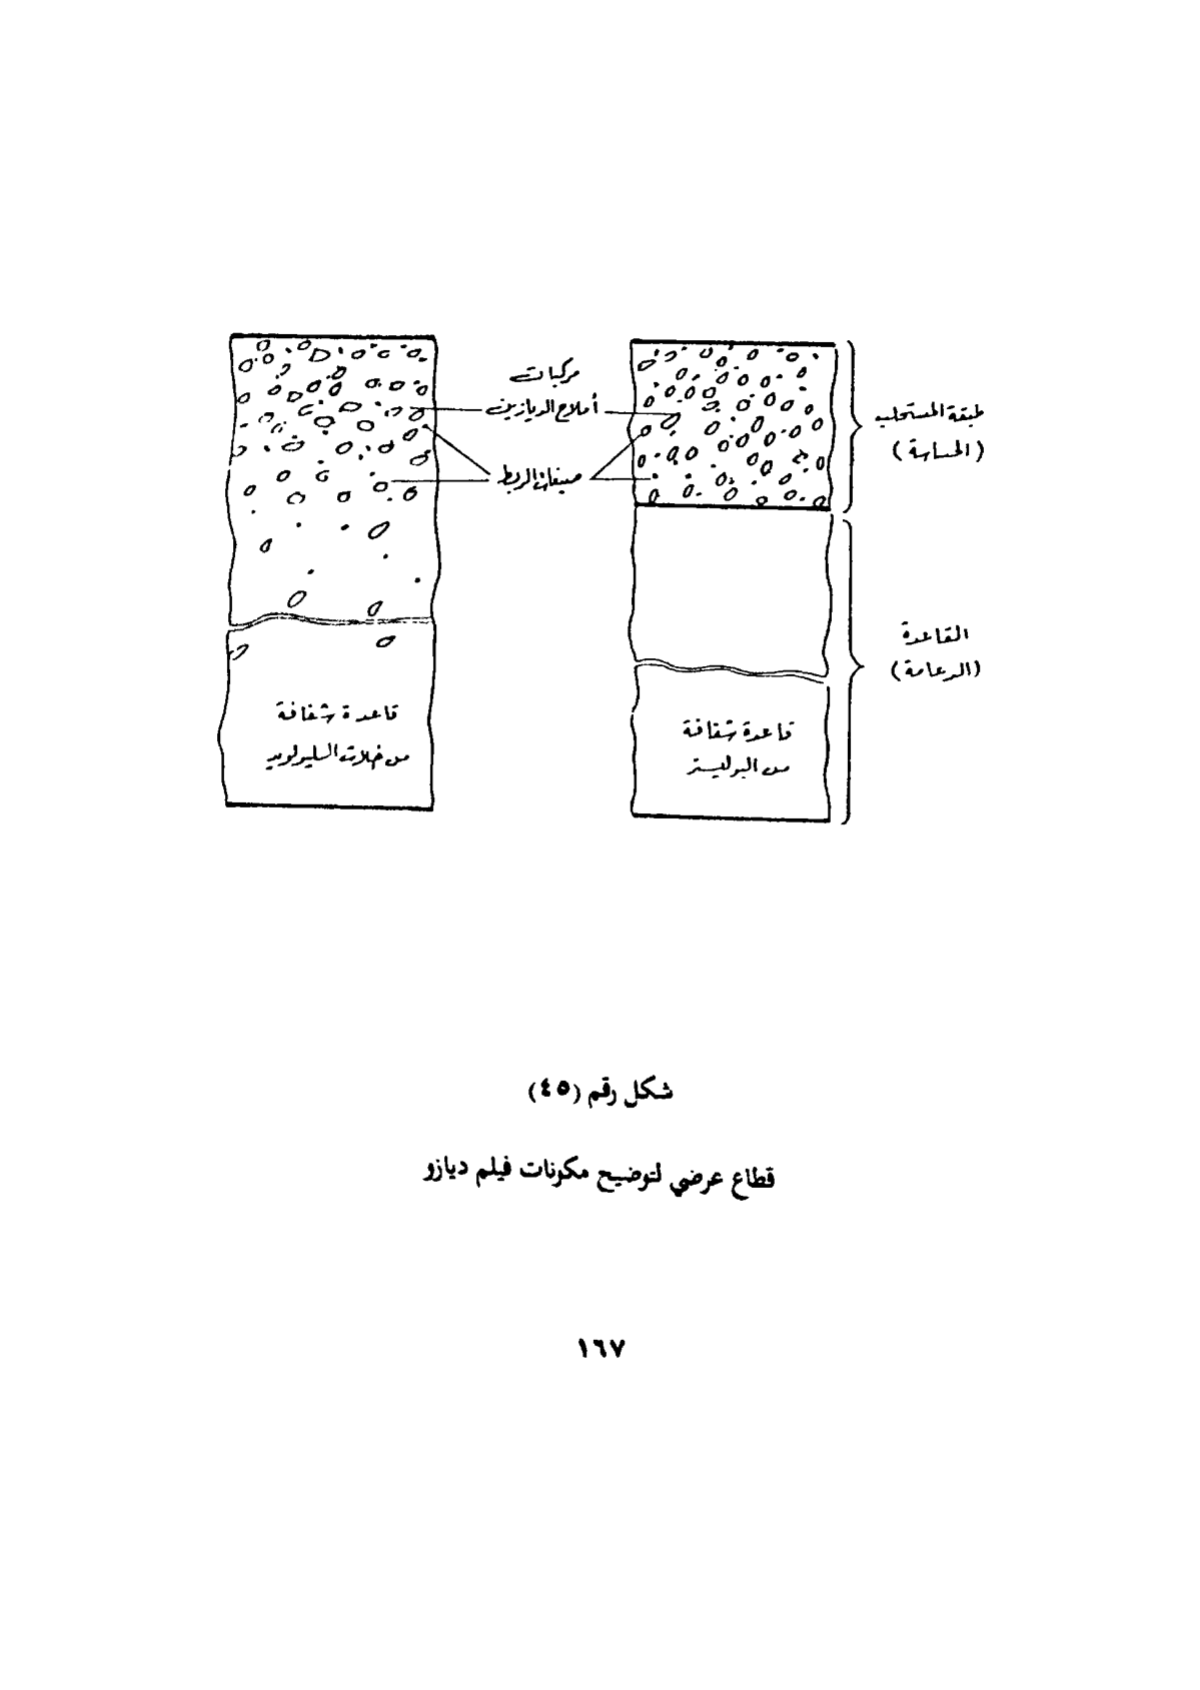 مركبات
أملاح الديازين
صبغات الربط
طبقة المستحلب
(الحساسة)
القاعدة
(الدعامة)
قاعدة شفافة
من البوليستر
قاعدة شفافة
من خلات السليولويد
شكل رقم (٤٥)
قطاع عرضي لتوضيح مكونات فيلم ديازو
١٦٧